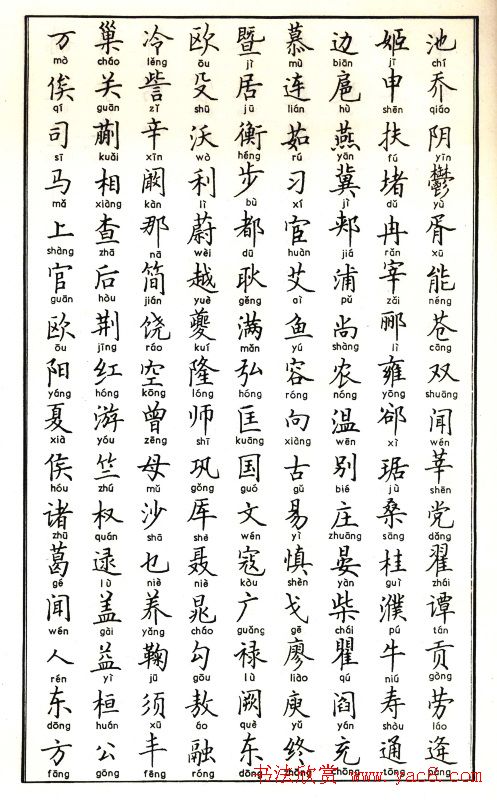 池 chí 乔 qiáo 阴 yīn 鬱 yù 胥 xū 能 néng 苍 cāng 双 shuāng 闻 wén 莘 shēn 党 dǎng 翟 zhái 谭 tán 贡 gòng 劳 láo 逄
姬 jī 申 shēn 扶 fú 堵 dǔ 冉 rǎn 宰 zǎi 郦 lì 雍 yōng 郤 xì 琚 jù 桑 sāng 桂 guì 濮 pú 牛 niú 寿 shòu 通 tōng
边 biān 扈 hù 燕 yān 冀 jì 郏 jiá 浦 pǔ 尚 shàng 农 nóng 温 wēn 别 bié 庄 zhuāng 晏 yàn 柴 chái 瞿 qú 阎 yán 充 chōng
慕 mù 连 lián 茹 rú 习 xí 宦 huàn 艾 ài 鱼 yú 容 róng 向 xiàng 古 gǔ 易 yì 慎 shèn 戈 gē 廖 liào 庾 yǔ 终 zhōng
暨 jì 居 jū 衡 héng 步 bù 都 dū 耿 gěng 满 mǎn 弘 hóng 匡 kuāng 国 guó 文 wén 寇 kòu 广 guǎng 禄 lù 阙 què 东 dōng
欧 ōu 殳 shū 沃 wò 利 lì 蔚 wèi 越 yuè 夔 kuí 隆 lóng 师 shī 巩 gǒng 厍 shè 聂 niè 晁 cháo 勾 gōu 敖 áo 融 róng
冷 lěng 訾 zī 辛 xīn 阚 kàn 那 nā 简 jiǎn 饶 ráo 空 kōng 曾 zēng 母 mǔ 沙 shā 乜 niè 养 yǎng 鞠 jū 须 xū 丰 fēng
巢 cháo 关 guān 蒯 kuǎi 相 xiàng 查 zhā 后 hòu 荆 jīng 红 hóng 游 yóu 竺 zhú 权 quán 逯 lù 盖 gài 益 yì 桓 huán 公 gōng
万 mò 俟 qí 司 sī 马 mǎ 上 shàng 官 guān 欧 ōu 阳 yáng 夏 xià 侯 hóu 诸 zhū 葛 gě 闻 wén 人 rén 东 dōng 方 fāng
书法欣赏 www.yac8.com